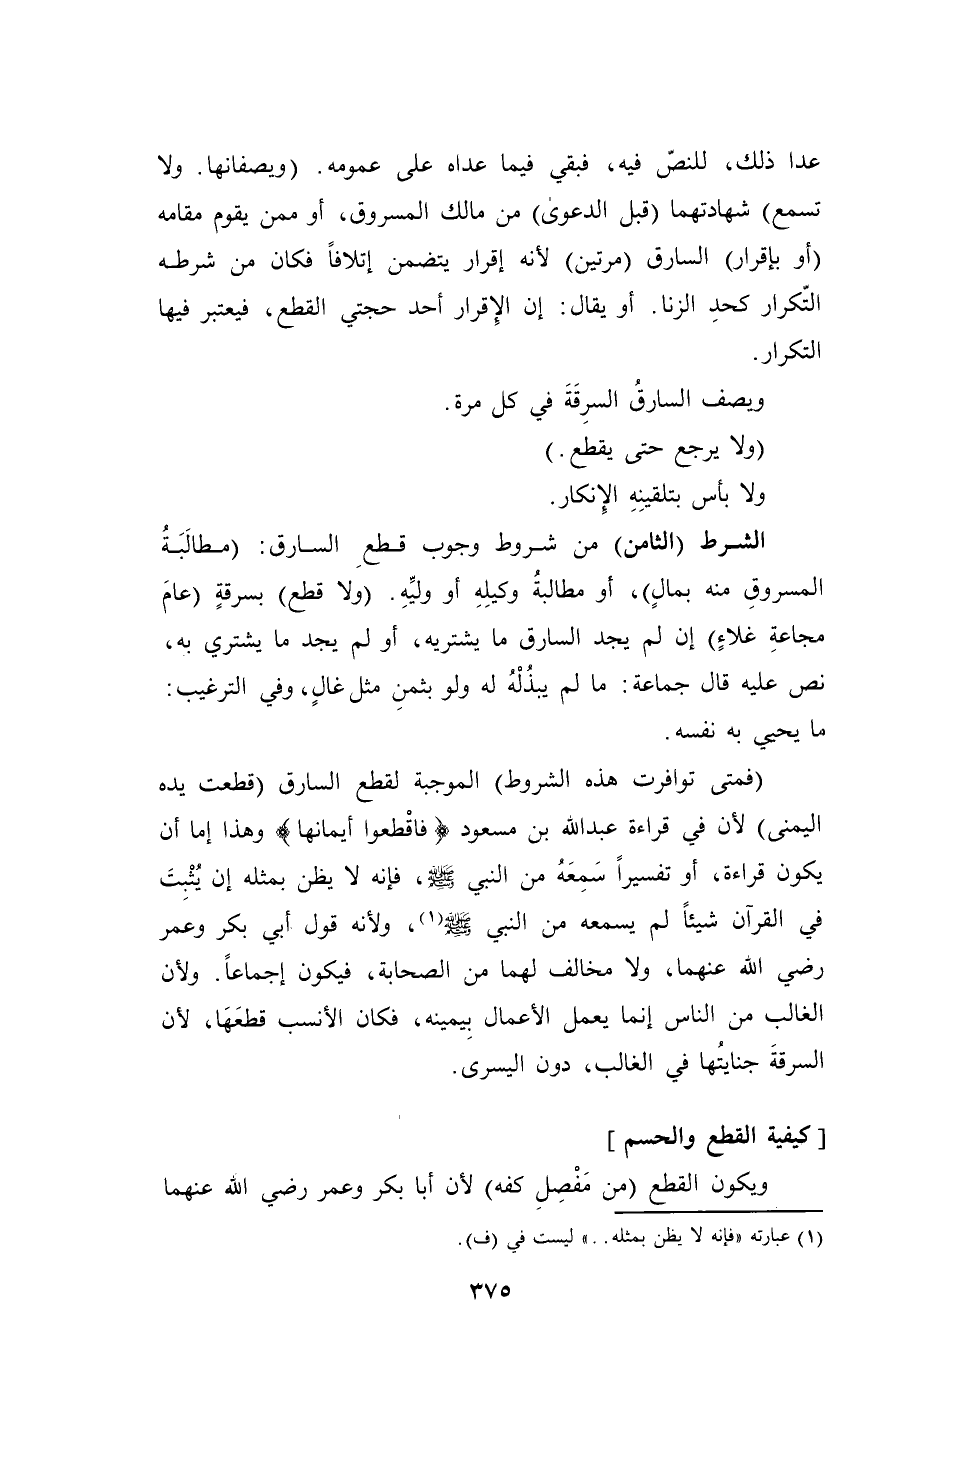 عدا ذلك، للنصّ فيه، فبقي فيما عداه على عمومه. (ويصفانها. ولا
تسمع) شهادتهما (قبل الدعوىٰ) من مالك المسروق، أو ممن يقوم مقامه
(أو بإقرار) السارق (مرتين) لأنه إقرار يتضمن إتلافاً فكان من شرطه
التّكرار كحدِ الزنا. أو يقال: إن الإِقرار أحد حجتي القطع، فيعتبر فيها
التكرار.
ويصف السارقُ السرِقَةَ في كل مرة.
(ولا يرجع حتى يقطع.)
ولا بأس بتلقينِهِ الإِنكار.
الشرط (الثامن) من شروط وجوب قطعِ السارق: (مطالَبَةُ
المسروقِ منه بمالٍ)، أو مطالبةُ وكيلِهِ أو وليِّهِ. (ولا قطع) بسرقةٍ (عامَ
مجاعةِ غلاءٍ) إن لم يجد السارق ما يشتريه، أو لم يجد ما يشتري به،
نص عليه قال جماعة: ما لم يبذُلْهُ له ولو بثمنِ مثل غالٍ، وفي الترغيب:
ما يحيي به نفسه.
(فمتى توافرت هذه الشروط) الموجبة لقطع السارق (قطعت يده
اليمنى) لأن في قراءة عبدالله بن مسعود ﴿فاقْطعوا أيمانها﴾ وهذا إما أن
يكون قراءة، أو تفسيراً سَمِعَهُ من النبي ﷺ، فإنه لا يظن بمثله إن يُثْبِتَ
في القرآن شيئاً لم يسمعه من النبي ﷺ(١)، ولأنه قول أبي بكر وعمر
رضي الله عنهما، ولا مخالف لهما من الصحابة، فيكون إجماعاً. ولأن
الغالب من الناس إنما يعمل الأعمال بِيمينه، فكان الأنسب قطعَهَا، لأن
السرقةَ جنايتُها في الغالب، دون اليسرى.
[كيفية القطع والحسم]
ويكون القطع (من مَفْصِلِ كفه) لأن أبا بكر وعمر رضي الله عنهما
(١) عبارته «فإنه لا يظن بمثله..» ليست في (ف).
٣٧٥